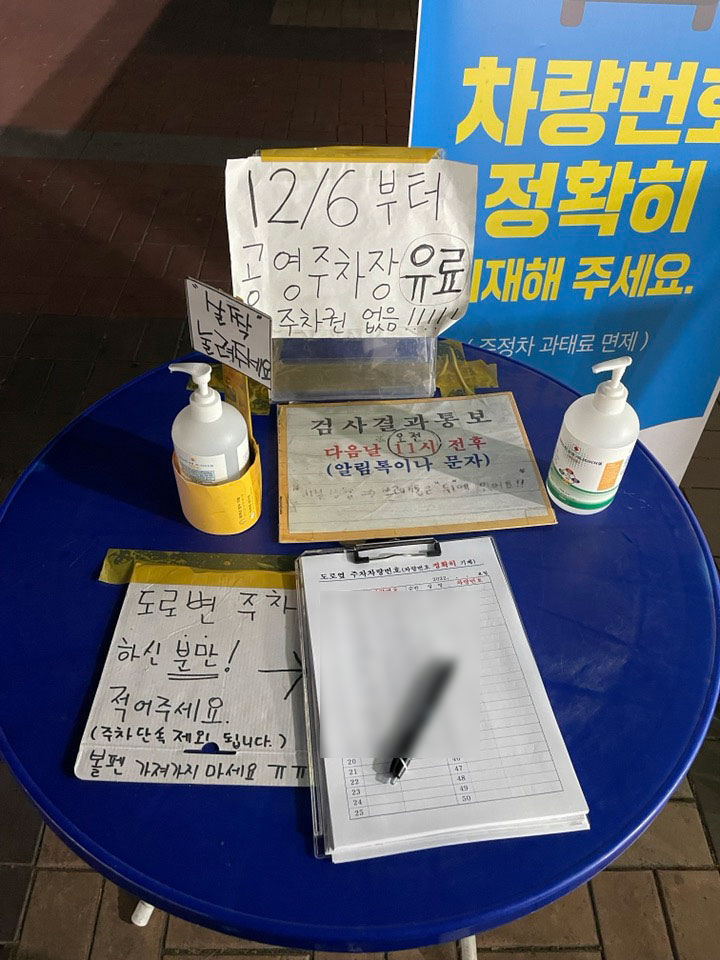 차량번호
정확히
기재해 주세요.
( 주정차 과태료 면제 )
12/6 부터
공영주차장 유료
주차권 없음!!!!!
검사결과통보
오전
다음날 11시 전후
(알림톡이나 문자)
도로변 주차
하신 분만! →
적어주세요.
(주차단속 제외 됩니다.)
볼펜 가져가지 마세요 ㅠㅠ
도로옆 주차차량번호(차량번호 정확히 기재)
2022.
요일
성 명
차량번호
20
21
22
23
24
25
46
47
48
49
50